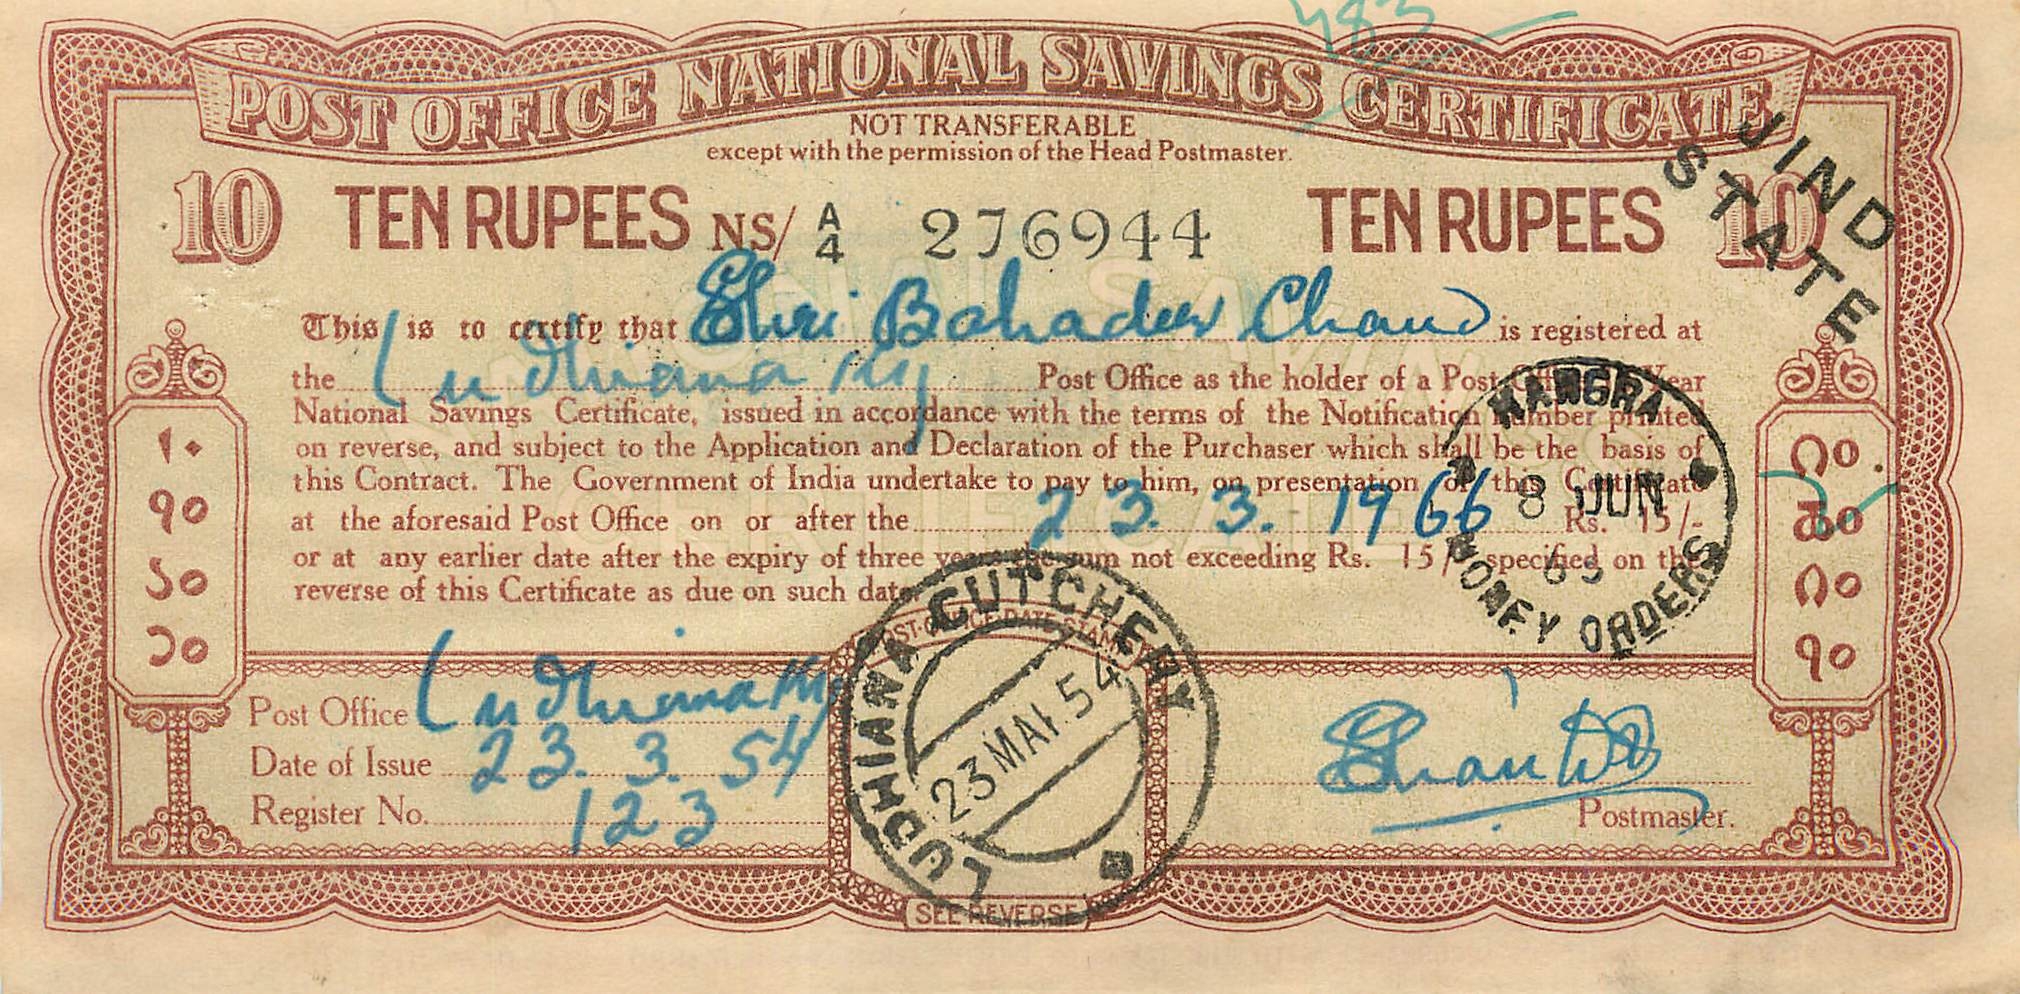 483
POST OFFICE NATIONAL SAVINGS CERTIFICATE
NOT TRANSFERABLE
except with the permission of the Head Postmaster.
10 TEN RUPEES NS/ A/4 276944 TEN RUPEES 10
JIND
STATE
This is to certify that Shri Bahadur Chand is registered at
the Ludhiana Ky Post Office as the holder of a Post Office Year
National Savings Certificate, issued in accordance with the terms of the Notification Number printed
on reverse, and subject to the Application and Declaration of the Purchaser which shall be the basis of
this Contract. The Government of India undertake to pay to him, on presentation of this Certificate
at the aforesaid Post Office on or after the 23. 3. 1966 Rs. 15/-
or at any earlier date after the expiry of three years the sum not exceeding Rs. 15/- specified on the
reverse of this Certificate as due on such date
KANGRA
8 JUN
65
MONEY ORDERS
۱۰
१०
১০
੧੦
౧౦
೧೦
Post Office Ludhiana Ky
Date of Issue 23. 3. 54
Register No. 123
POST OFFICE DATE STAMP
LUDHIANA CUTCHERY
23 MAR. 54
Postmaster.
SEE REVERSE